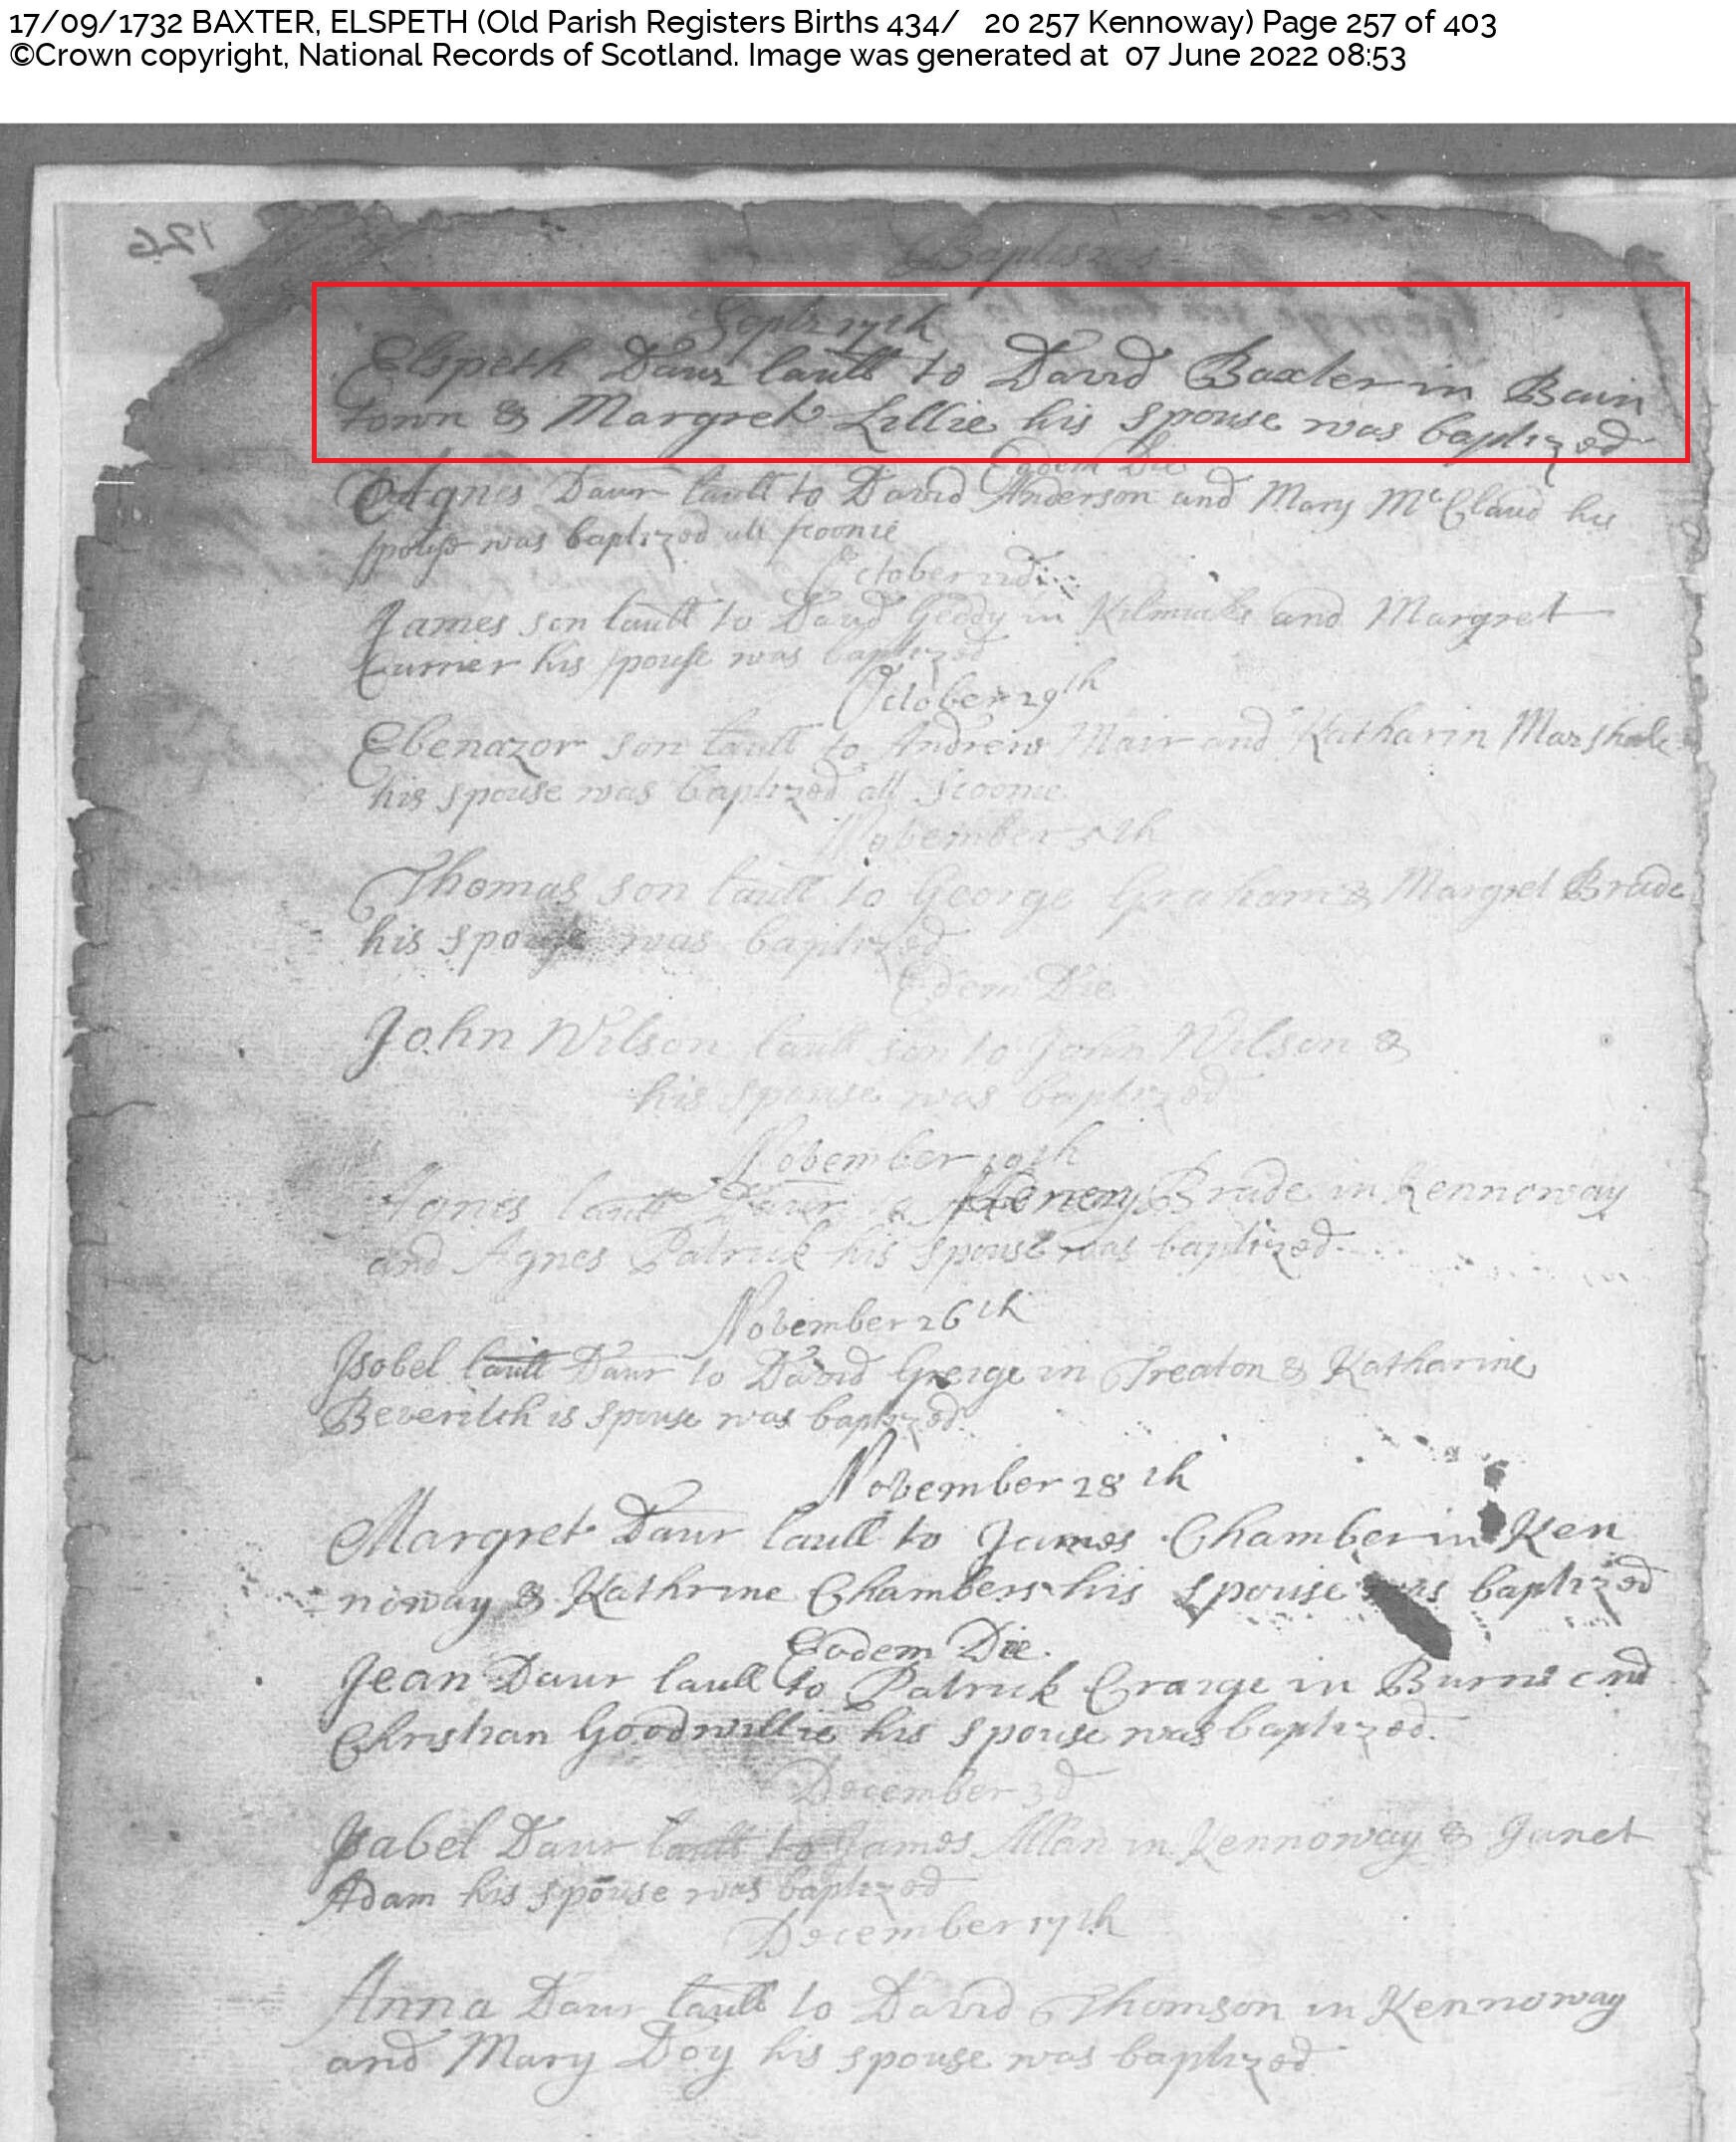 17/09/1732 BAXTER, ELSPETH (Old Parish Registers Births 434/ 20 257 Kennoway) Page 257 of 403
©Crown copyright, National Records of Scotland. Image was generated at 07 June 2022 08:53
126
Baptisms
Septr 17th
Elspeth Daur laull to David Baxter in Bain
town & Margret Lillie his spouse was baptized
Eodem Die
Agnes Daur laull to David Anderson and Mary McClaud his
spouse was baptized all scoonie
October 22d
James son laull to David Geddy in and Margret
Currier his spouse was baptized
October 29th
Ebenazor son laull to Andrew Mair and Katharin Marshale
his spouse was baptized all Scoonie
November 5th
Thomas son laull to George Graham & Margret Brade
his spouse was baptized
Edem Die
John Wilson laull son to John Wilson &
his spouse was baptized
November 19th
Agnes laull Daur to Henery Brade in Kennoway
and Agnes Patrick his spouse was baptized
November 26th
Isobel laull Daur to David Greige in Treaton & Katharine
Beveritch is spouse was baptized
November 28th
Margret Daur laull to James Chamber in Ken
noway & Kathrine Chambers his spouse was baptized
Eodem Die.
Jean Daur laull to Patrick Craige in Burns and
Christian Goodwillie his spouse was baptized.
December 3d
Isabel Daur laull to James Allan in Kennoway & Janet
Adam his spouse was baptized
December 17th
Anna Daur laull to David Thomson in Kennoway
and Mary Doy his spouse was baptized